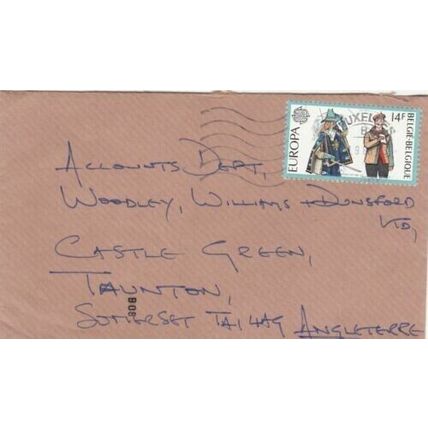 EUROPA
14F
BELGIE-BELGIQUE
ACCOUNTS DEPT,
WOODLEY, WILLIAMS + DUNSFORD
LTD,
CASTLE GREEN,
TAUNTON,
SOMERSET TA1 4AG ANGLETERRE